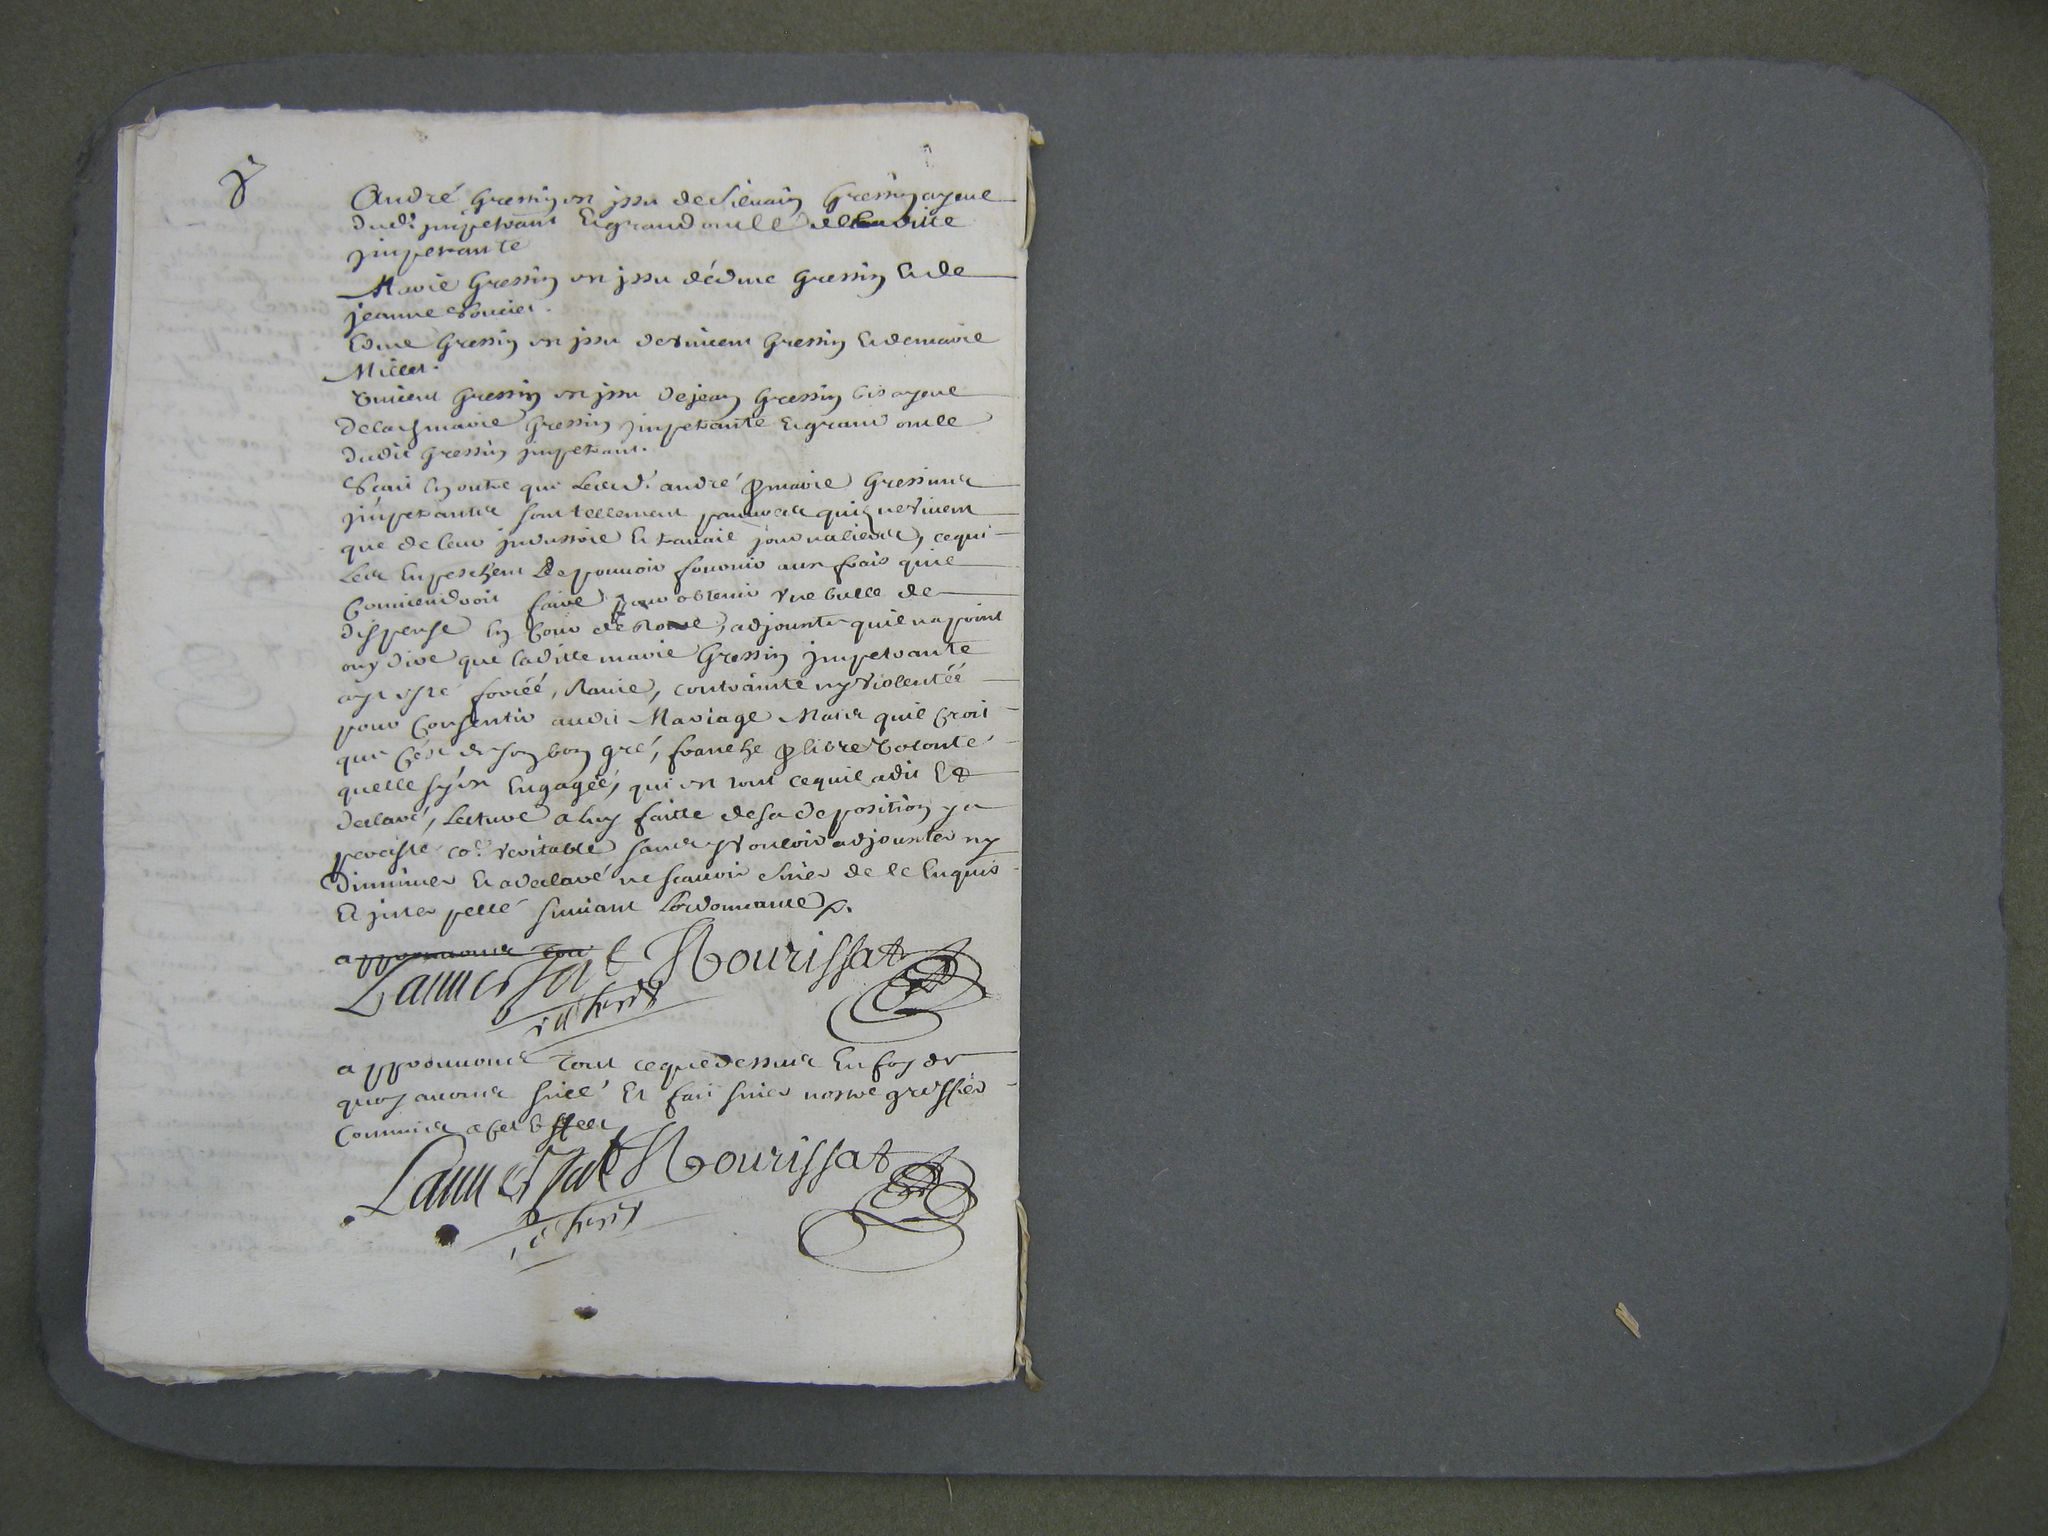 André Gressin est jssu de Siluain Gressin ayeul
dud. jmpetrant Et grand oncle de ladille
jmpetrante
Marie Gressin est jssu déesme Gressin Et de
jeanne
Edme Gressin est jssu de Vincent Gressin Et de marie
Millet.
Vincent Gressin est jssu de jean Gressin bis ayeul
de lad. marie Gressin jmpetrante Et grand oncle
dudit Gressin jmpetrant.
Scait En outre que Lesd. andré & marie Gressins
jmpetrants sont tellement pauures quilz ne viuent
que de leur jndustrie Et trauail journaliers, ce qui
Les Enpeschent De pouuoir fournir aux frais quil
Conuiendroit faire pour obtenir vne bulle de
dispense En Cour de Rome, adjouste quil na point
ouy dire que laditte marie Gressin jmpetrante
ayt esté forcéé, Rauie, contrainte ny violentéé
pour Consentir audit Mariage Mais quil Croit
que Cést de son bon gré, franche & libre Volonté
quelle sy est Engagéé, qui est tout ce quil a dit Et
declaré, Lecture a luy faitte de sa deposition y a
persisté co.e veritable sans y Vouloir adjouster ny
diminuer Et a declaré ne scauoir siner de ce Enquis
Et jnterpellé suiuant Lordonnance.
approuuons tou
Nourissat
approuuons Tout ce que dessus En foy de
quoy auons siné Et fait siner nostre greffier
Commis a cet Effect
Nourissat